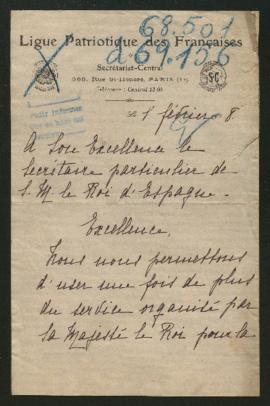 68.501
à 69.156
Ligue Patriotique des Françaises
Secrétariat-Central
368, Rue St-Honoré, PARIS (1er)
Téléphone : Central
le 1 février 8.
A Son Excellence le
Secrétaire particulier de
S. M. le Roi d'Espagne.
Excellence,
Nous nous permettons
d'user une fois de plus
du service organisé par
sa Majesté le Roi pour la